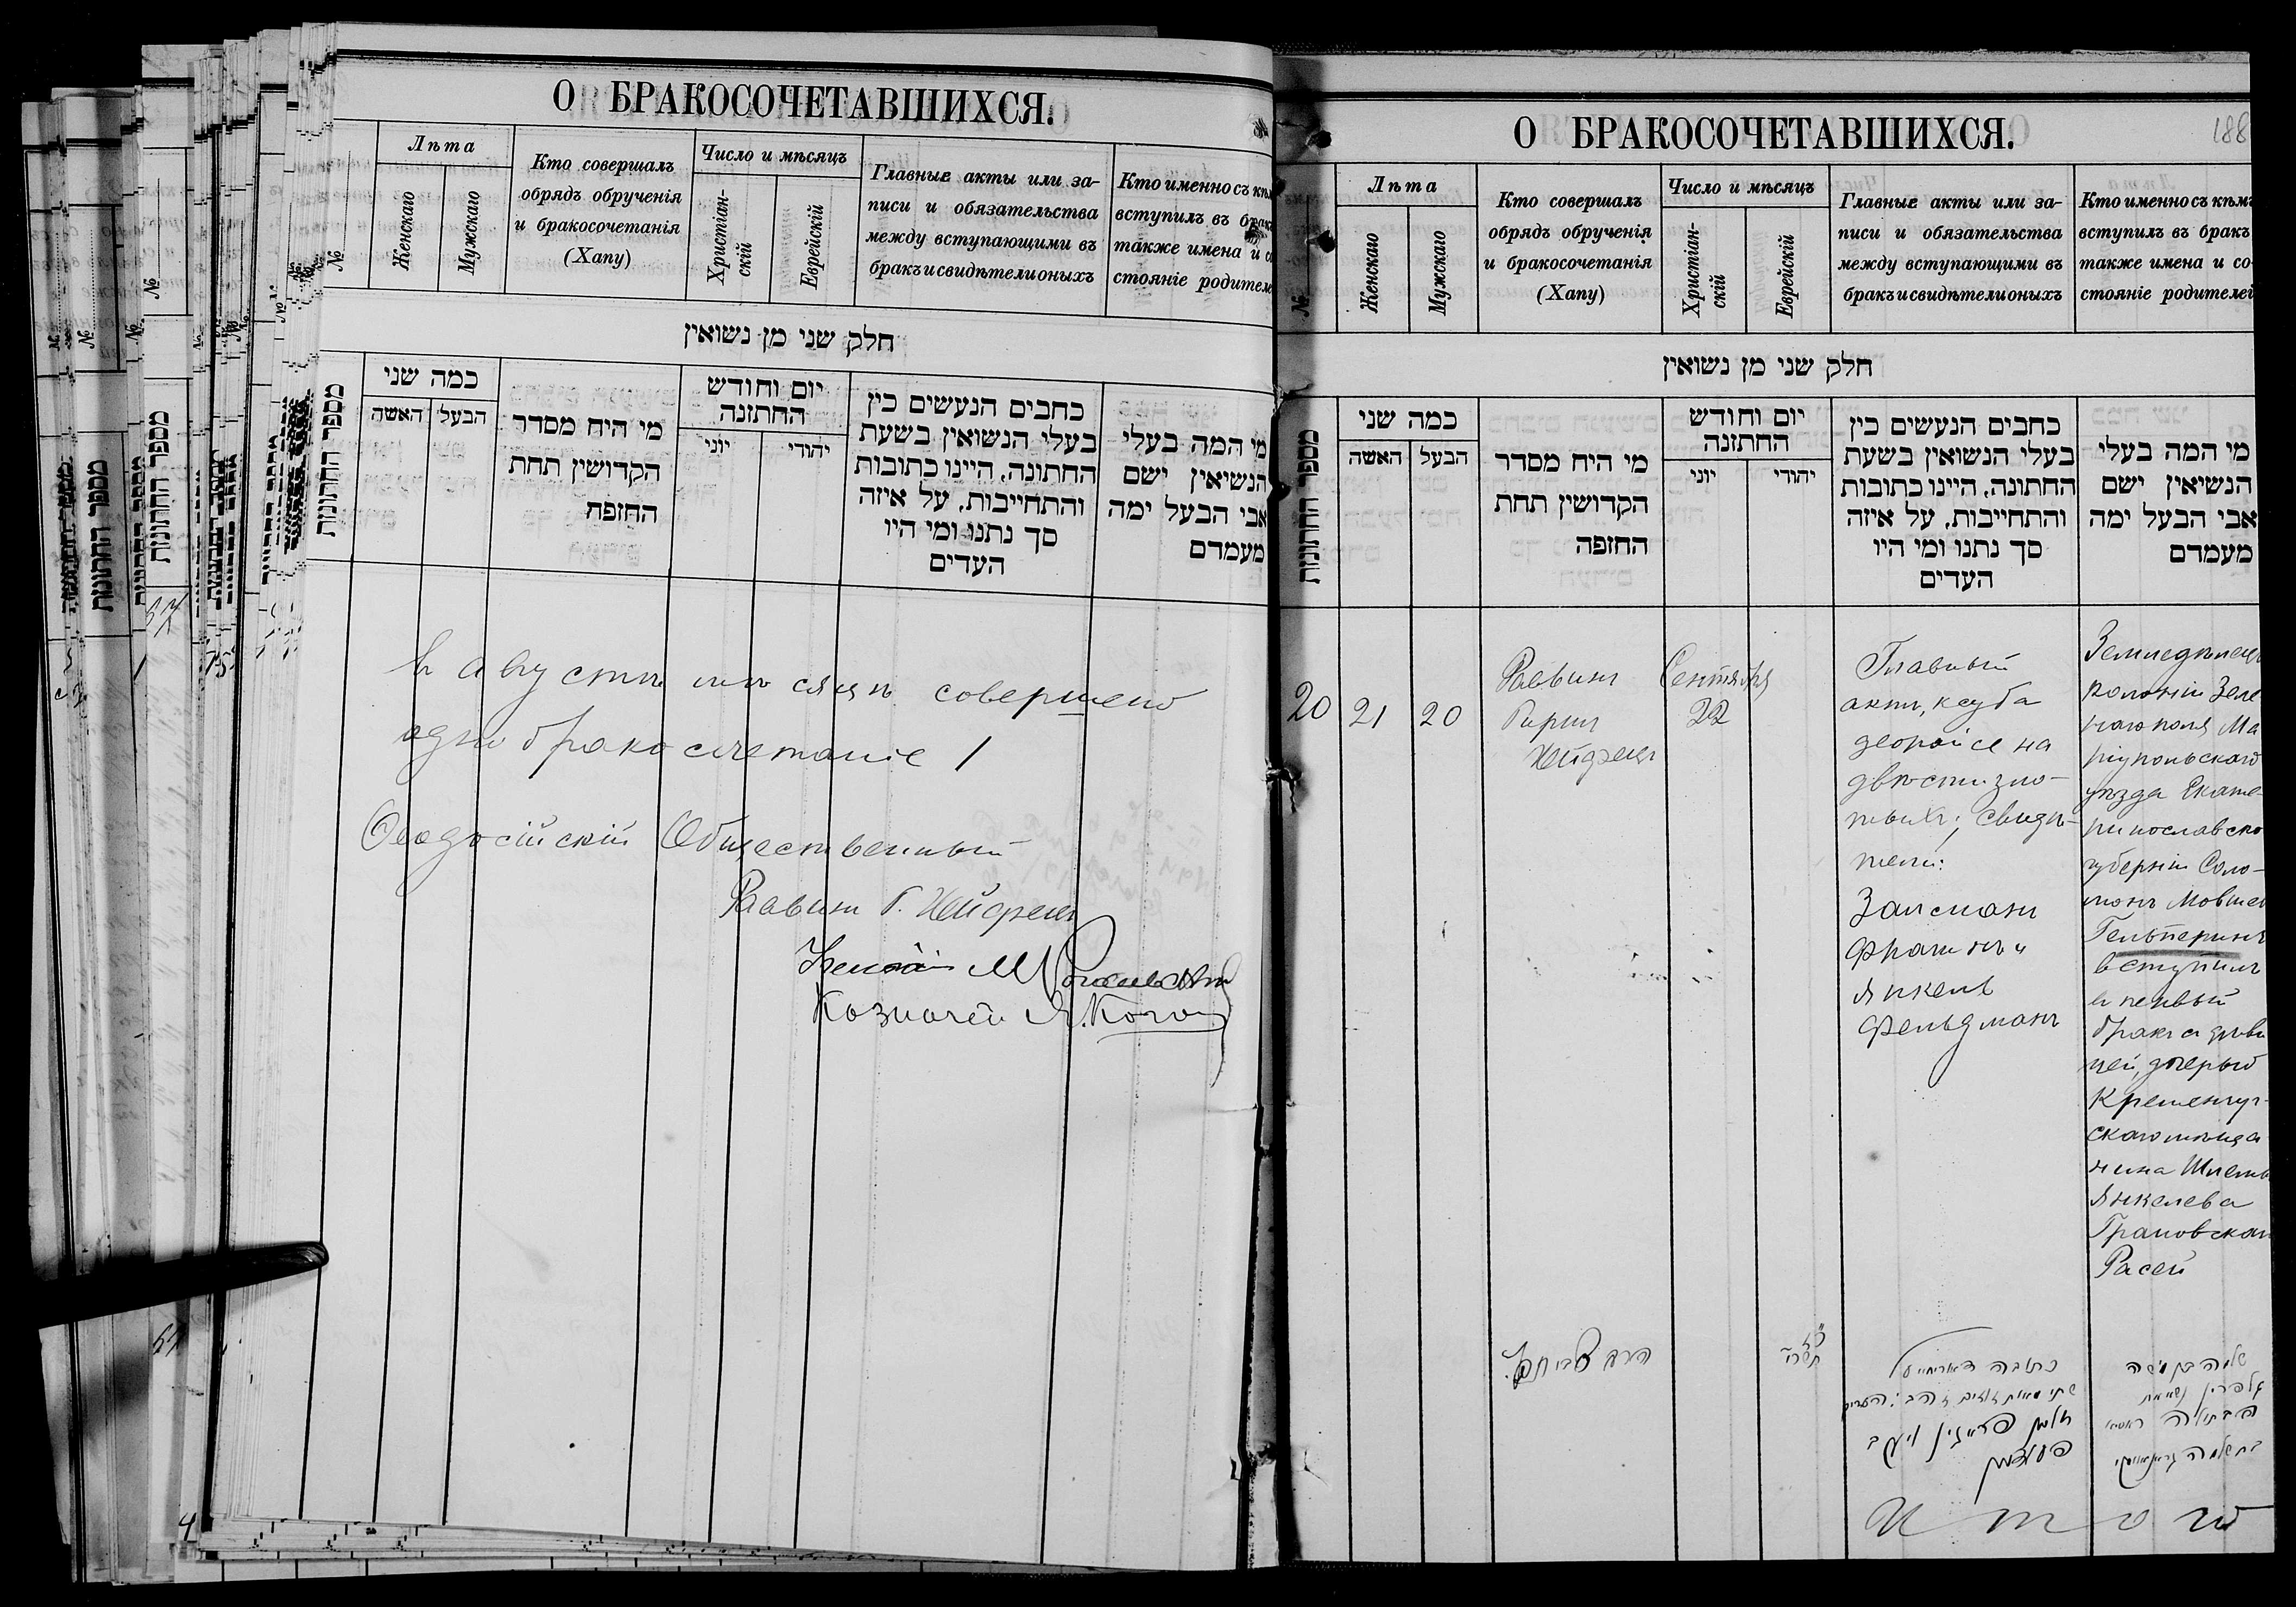 О БРАКОСОЧЕТАВШИХСЯ.
№
Лѣта
Женскаго
Мужскаго
Кто совершалъ
обрядъ обрученія
и бракосочетанія
(Хапу)
Число и мѣсяцъ
Христіан-
скій
Еврейскій
Главные акты или за-
писи и обязательства
между вступающими въ
бракъ и свидѣтели оныхъ
Кто именно съ кѣм
вступилъ въ брак
также имена и со
стояніе родителе
חלק שני מן נשואין
מספר החתונות
כמה שני
האשה
הבעל
מי היח מסדר
הקדושין תחת
החופה
יום וחודש
החתונה
יוני
יהודי
כחבים הנעשים כין
בעלי הנשואין בשעת
החתונה, היינו כתובות
והתחייבות, על איזה
סך נתנו ומי היו
העדים
מי המה בעלי
הנשיאין ישם
אבי הבעל ימה
מעמדם
Въ августѣ мѣсяцѣ совершено
одно бракосочетаніе 1
Ѳеодосійскій Общественный
Равинъ Г. Нейфельд
М.
Козначей Я. Коган
О БРАКОСОЧЕТАВШИХСЯ.
188
№
Лѣта
Женскаго
Мужскаго
Кто совершалъ
обрядъ обрученія
и бракосочетанія
(Хапу)
Число и мѣсяцъ
Христіан-
скій
Еврейскій
Главные акты или за-
писи и обязательства
между вступающими въ
бракъ и свидѣтели оныхъ
Кто именно съ кѣмъ
вступилъ въ бракъ
также имена и со-
стояніе родителей
חלק שני מן נשואין
מספר החתונות
כמה שני
האשה
הבעל
מי היח מסדר
הקדושין תחת
החופה
יום וחודש
החתונה
יוני
יהודי
כחבים הנעשים כין
בעלי הנשואין בשעת
החתונה, היינו כתובות
והתחייבות, על איזה
סך נתנו ומי היו
העדים
מי המה בעלי
הנשיאין ישם
אבי הבעל ימה
מעמדם
20
21
20
Равинъ
Гирш
Сентября
22
Главный
актъ, ксуба
деорайсе на
двѣсти зло-
тыхъ; свидѣ-
тели:
Залсманъ
и
Янкель
Фельдманъ
Земледѣлецъ
колоніи Зеле
наго поля Ма
ріупольскаго
уѣзда Екате-
ринославско
губерніи Соло-
монъ Мовшев
Гельперинъ
вступилъ
въ первый
бракъ съ дѣви
цей, дочерью
Кременчуг-
скаго мѣща
нина Шлемы
Янкелева
Грановскаго
Расей
הרב
כ״ז
תשרי
כתובה דאורייתא על
שתי מאות זוזים זהב: העדים
זלמן ויעקב
פעלדמאן
שלמה בן משה
גלפרין נשא את
הבתולה ראסיא
בת שלמה גראנאווסקי
Итого